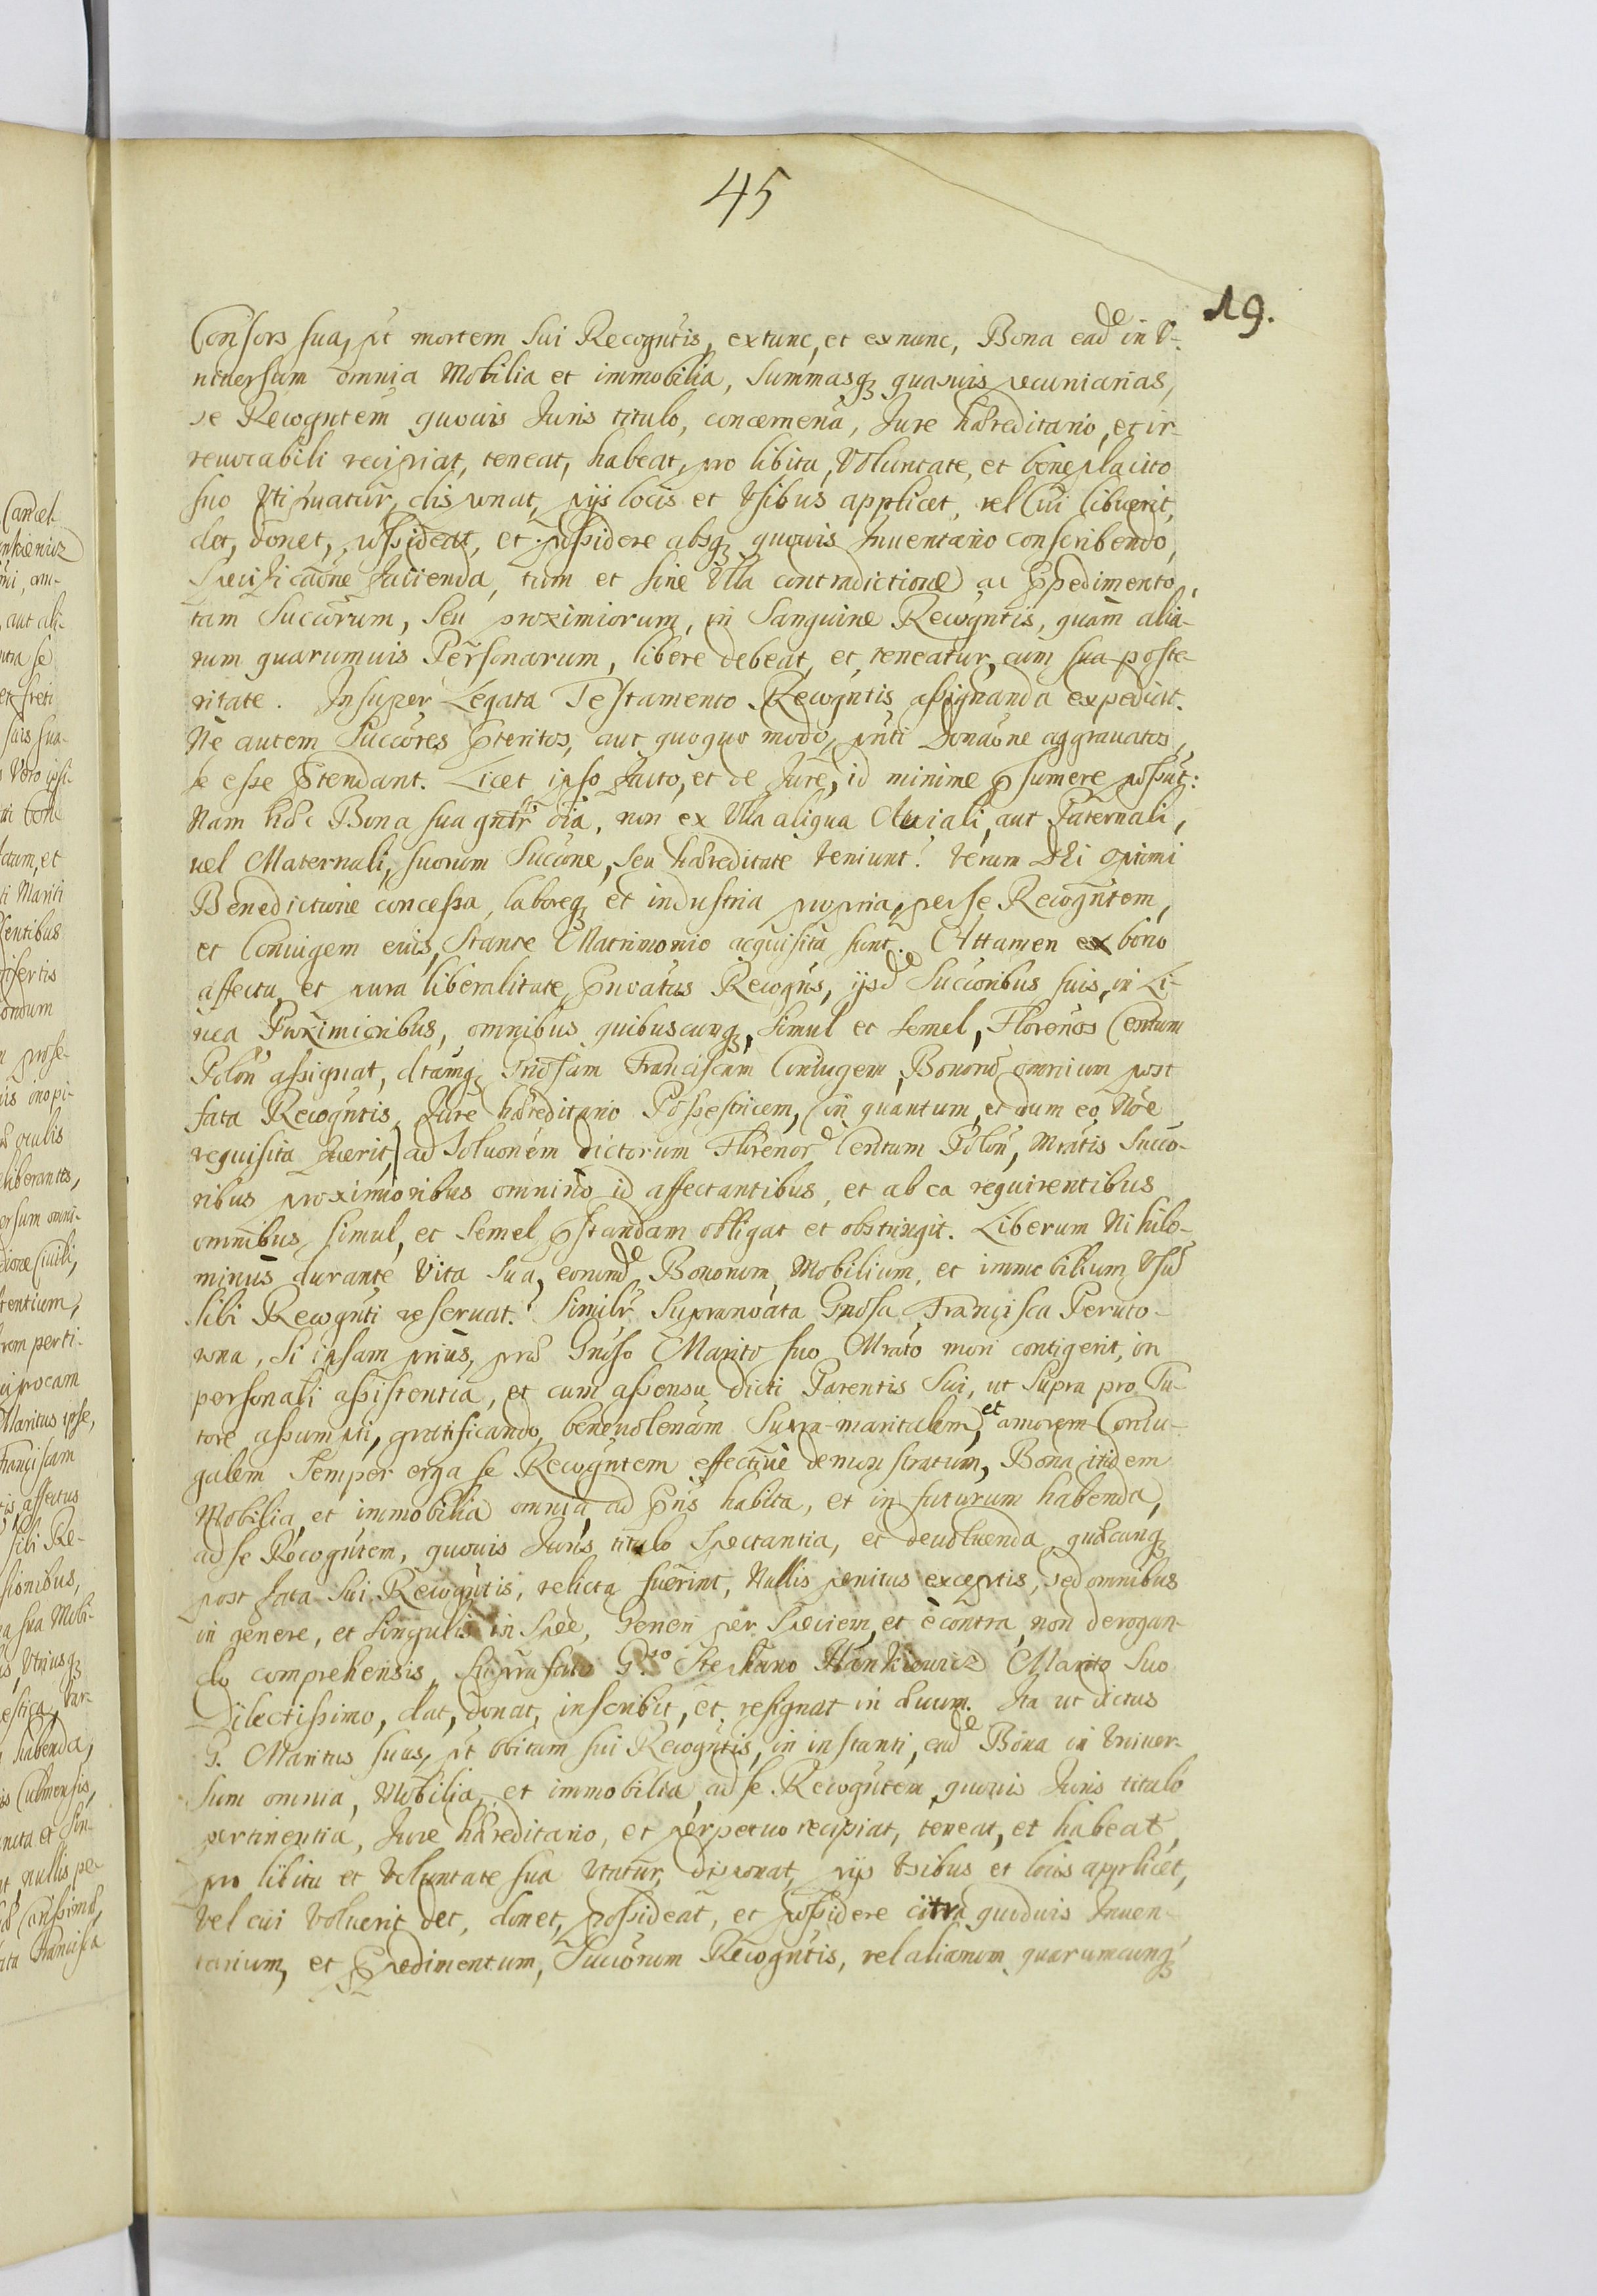 45
19.
Consors sua, pt mortem sui Recogntis, extunc, et exnunc, Bona eadde in V-
niuersum omnia Mobilia et immobilia, summasq quasuis pecuniarias,
se Recogntem quouis Juris titulo, concernena, Jure hæreditario, et ir-
reuocabili recipiat, teneat, habeat, pro libitu, Voluntate, et beneplacito
suo Vti fruatur, disponat, pijs locis et Vsibus applicet, vel Cui libuerit,
det, donet, possideat, et possidere absq quouis Inuentario conscribendo,
Specificatione facienda, tum et sine Vlla contradictione ac Ppedimento,
tam Succorum, seu proximiorum, in Sanguine Recogntis, quam alia-
rum quarumuis Personarum, libere debeat, et teneatur, cum sua poste-
ritate. Insuper Legata Testamento Recogntis assignanda expediat.
Ne autem Succores Pteritos, aut quoquo modo, pnti Donaone aggrauatos,
se esse Ptendant. Licet ipso facto, et de Jure, id minime Psumere possut:
Nam hæc Bona sua gntr oia, non ex Vlla aliqua Auiali, aut Paternali,
uel Maternali, suorum Succone, seu hæreditate veniunt: verum Dei optimi
Benedictione concessa, laboreq et industria propria, per se Recogntem,
et Coniugem eius, Stante Matrimonio acquisita sunt. Attamen ex bono
affectu, et pura liberalitate, Pnoatus Recogns, ijsdde Succoribus suis, in Li-
nea Proximioribus, omnibus quibuscunq, Simul et Semel, Florenos Centum
Polon assignat, dtamq Gnosam Franciscam Coniugem, Bonorum omnium post
fata Recogntis, Jure hæreditario Possestricem, (in quantum, et dum eo Noe
requisita fuerit,) ad Soluonem dictorum Florenor Centum Polon, Mratis Succo-
ribus proximioribus omnino id affectantibus, et ab ea requirentibus
omnibus, simul, et semel Pstandam obligat et obstringit. Liberum Nihilo-
minus durante Vita sua, eorundde Bonorum Mobilium, et immobilium Vsu
sibi Recognti reseruat. Similr Supranoata Gnosa Francisca Peruto-
wna, Si ipsam prius, præ Gnoso Marito suo Mrato mori contigerit, in
personali assistentia, et cum assensu dicti Parentis Sui, ut Supra pro Tu-
tore assumpti, gratificando, beneuolenam Supra-maritalem, et amorem Coniu-
galem Semper erga se Recogntem effectiue demonstratum, Bona itidem
Mobilia, et immobilia omnia, ad Pns habita, et in futurum habenda,
ad se Recogntem, quouis Juris titulo Spectantia, et deuoluenda, quæcunq
post fata Sui Recogntis, relicta fuerint, Nullis penitus exceptis, sed omnibus
in genere, et Singulis in Spee, Generi per Speciem, et è contra, non derogan-
do comprehensis, Suprafato G.so Stephano Hankiewicz Marito Suo
Dilectissimo, dat, donat, inscribit, et resignat in æuum. Ita ut dictus
G. Maritus suus, pt obitum sui Recogntis, in instanti, eadde Bona in Vniuer-
sum omnia, Mobilia, et immobilia, ad se Recogntem, quouis Juris titulo
pertinentia, Jure hæreditario, et perpetuo recipiat, teneat, et habeat,
pro libitu et Voluntate sua Vtatur, disponat, pijs Vsibus et locis applicet,
vel cui Voluerit det, donet, possideat, et possidere citra quoduis Inuen-
tarium, et Ppedimentum, Succorum Recogntis, vel aliarum quarumcunq